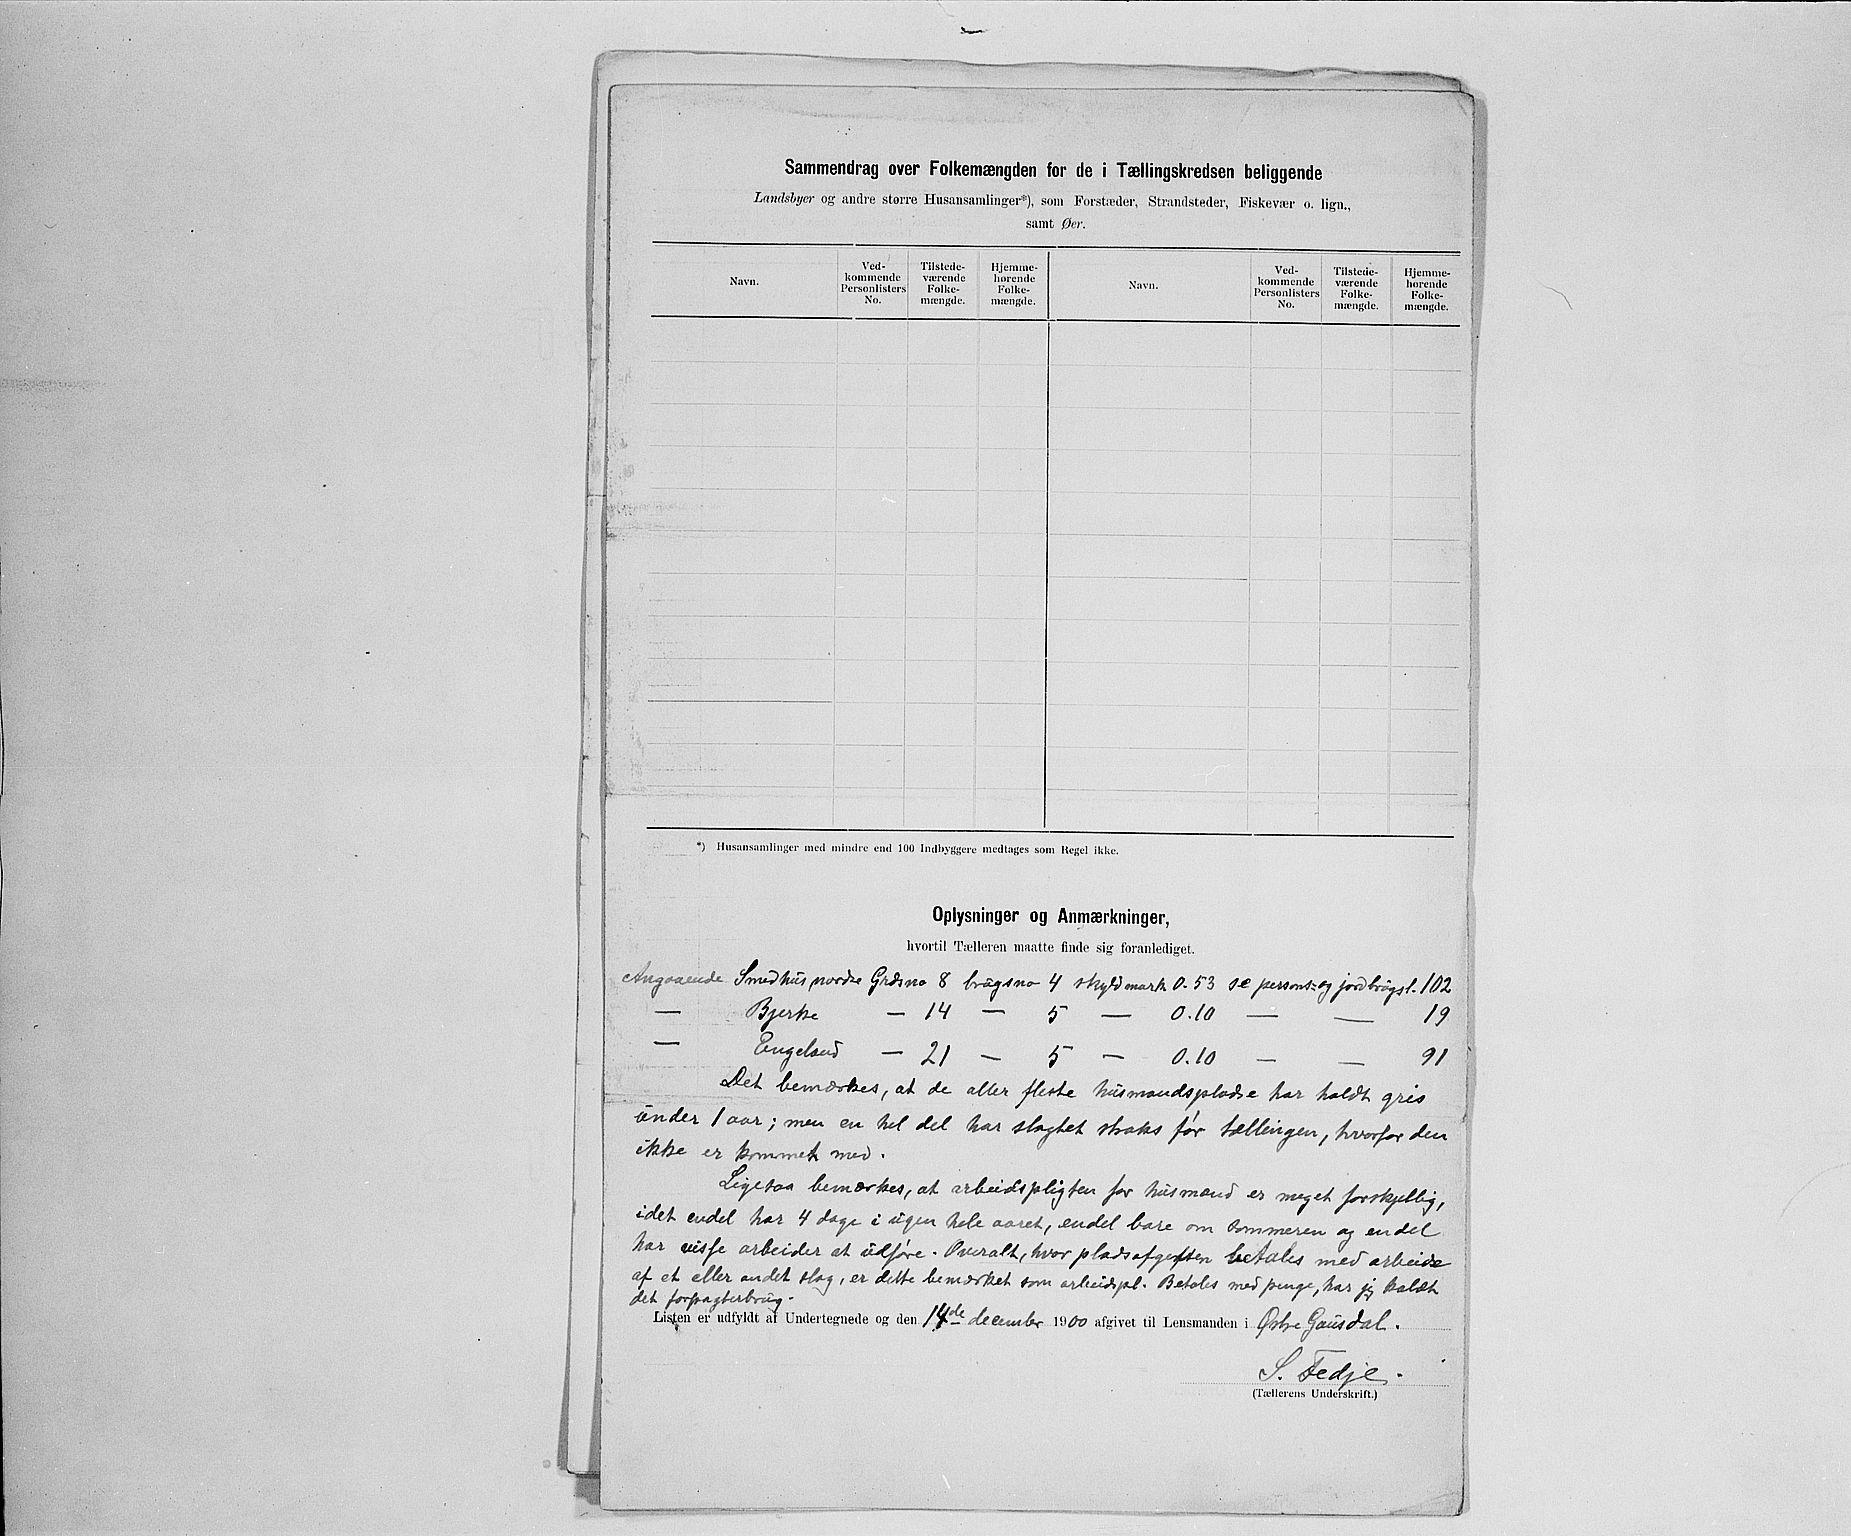 Sammendrag over Folkemængden for de i Tællingskredsen beliggende
Landsbyer og andre større Husansamlinger*), som Forstæder, Strandsteder, Fiskevær o. lign.,
samt Øer.
Navn.
Ved-
kommende
Personlisters
No.
Tilstede-
værende
Folke-
mængde.
Hjemme-
hørende
Folke-
mængde.
Navn.
Ved-
kommende
Personlisters
No.
Tilstede-
værende
Folke-
mængde.
Hjemme-
hørende
Folke-
mængde.
*) Husansamlinger med mindre end 100 Indbyggere medtages som Regel ikke.
Oplysninger og Anmærkninger,
hvortil Tælleren maatte finde sig foranlediget.
Angaaende Smedhus, nordre Grdsno 8 brugsno 4 skyldmark 0.53 se persons- og jordbrugsl. 102
— Bjerke — 14 — 5 — 0.10 — — 19
— Engelsud — 21 — 5 — 0.10 — — 91
Det bemærkes, at de aller fleste husmandspladse har holdt gris
under 1 aar; men en hel del har slagtet straks før tællingen, hvorfor den
ikke er kommet med.
Ligesaa bemærkes, at arbeidspligten for husmænd er meget forskjellig,
idet endel har 4 dage i ugen hele aaret, endel bare om sommeren og endel
har visse arbeider at udføre. Overalt, hvor pladsafgiften betales med arbeide
af et eller andet slag, er dette bemærket som arbeidspl. Betales med penge, har jeg kaldt
det forpagterbrug.
Listen er udfyldt af Undertegnede og den 14de december 1900 afgivet til Lensmanden i Østre Gausdal.
S. Fedje.
(Tællerens Underskrift.)